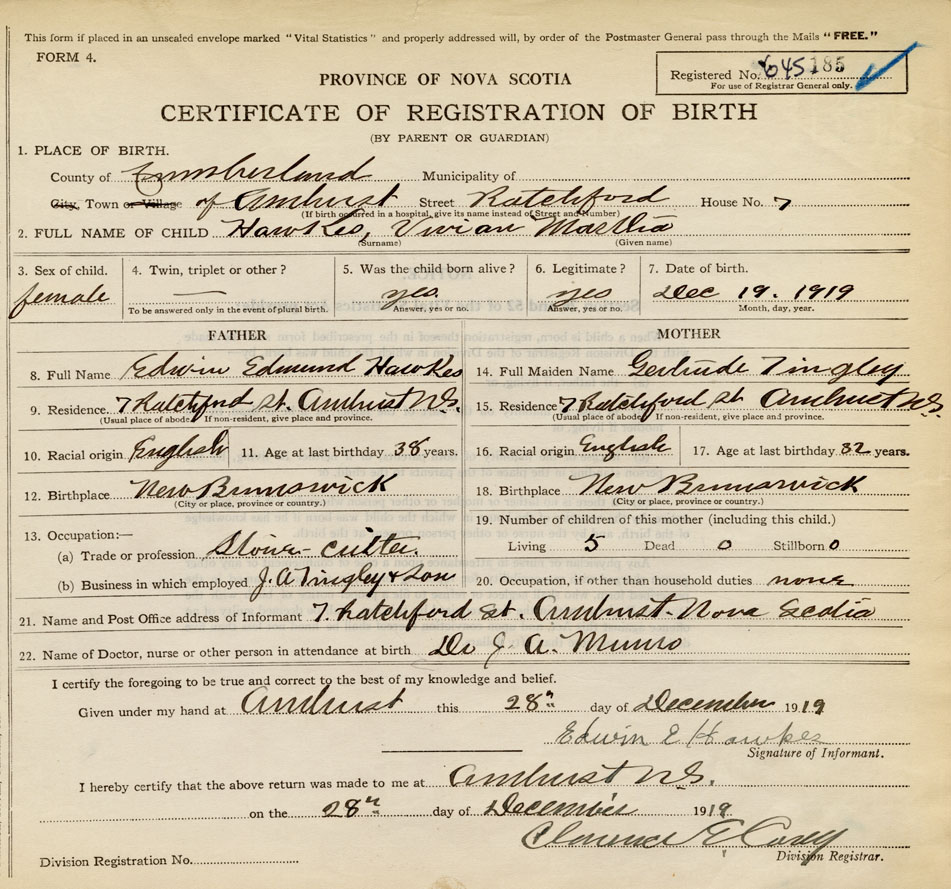 This form if placed in an unsealed envelope marked "Vital Statistics" and properly addressed will, by order of the Postmaster General pass through the Mails "FREE."
FORM 4.
Registered No. 645185
For use of Registrar General only.
PROVINCE OF NOVA SCOTIA
CERTIFICATE OF REGISTRATION OF BIRTH
(BY PARENT OR GUARDIAN)
1. PLACE OF BIRTH.
County of Cumberland Municipality of
City, Town or Village of Amherst Street Ratchford House No. 7
(If birth occurred in a hospital, give its name instead of Street and Number)
2. FULL NAME OF CHILD Hawkes, Vivian Martha
(Surname) (Given name)
3. Sex of child. 4. Twin, triplet or other? 5. Was the child born alive? 6. Legitimate? 7. Date of birth.
female — yes yes Dec 19. 1919
To be answered only in the event of plural birth. Answer, yes or no. Answer, yes or no. Month, day, year.
FATHER MOTHER
8. Full Name Edwin Edmund Hawkes 14. Full Maiden Name Gertrude Tingley
9. Residence 7 Ratchford St. Amherst N.S. 15. Residence 7 Ratchford St Amherst N.S.
(Usual place of abode. If non-resident, give place and province. (Usual place of abode. If non-resident, give place and province.
10. Racial origin English 11. Age at last birthday 38 years. 16. Racial origin English 17. Age at last birthday 32 years.
12. Birthplace New Brunswick 18. Birthplace New Brunswick
(City or place, province or country.) (City or place, province or country.)
13. Occupation:— 19. Number of children of this mother (including this child.)
(a) Trade or profession Stone-cutter. Living 5 Dead 0 Stillborn 0
(b) Business in which employed J. A Tingley & Son 20. Occupation, if other than household duties none
21. Name and Post Office address of Informant 7. Ratchford St. Amherst-Nova Scotia
22. Name of Doctor, nurse or other person in attendance at birth Dr J. A. Munro
I certify the foregoing to be true and correct to the best of my knowledge and belief.
Given under my hand at Amherst this 28th day of December 1919
Edwin E Hawkes
Signature of Informant.
I hereby certify that the above return was made to me at Amherst N.S.
on the 28th day of December 1919.
Clarence E Casey
Division Registrar.
Division Registration No.